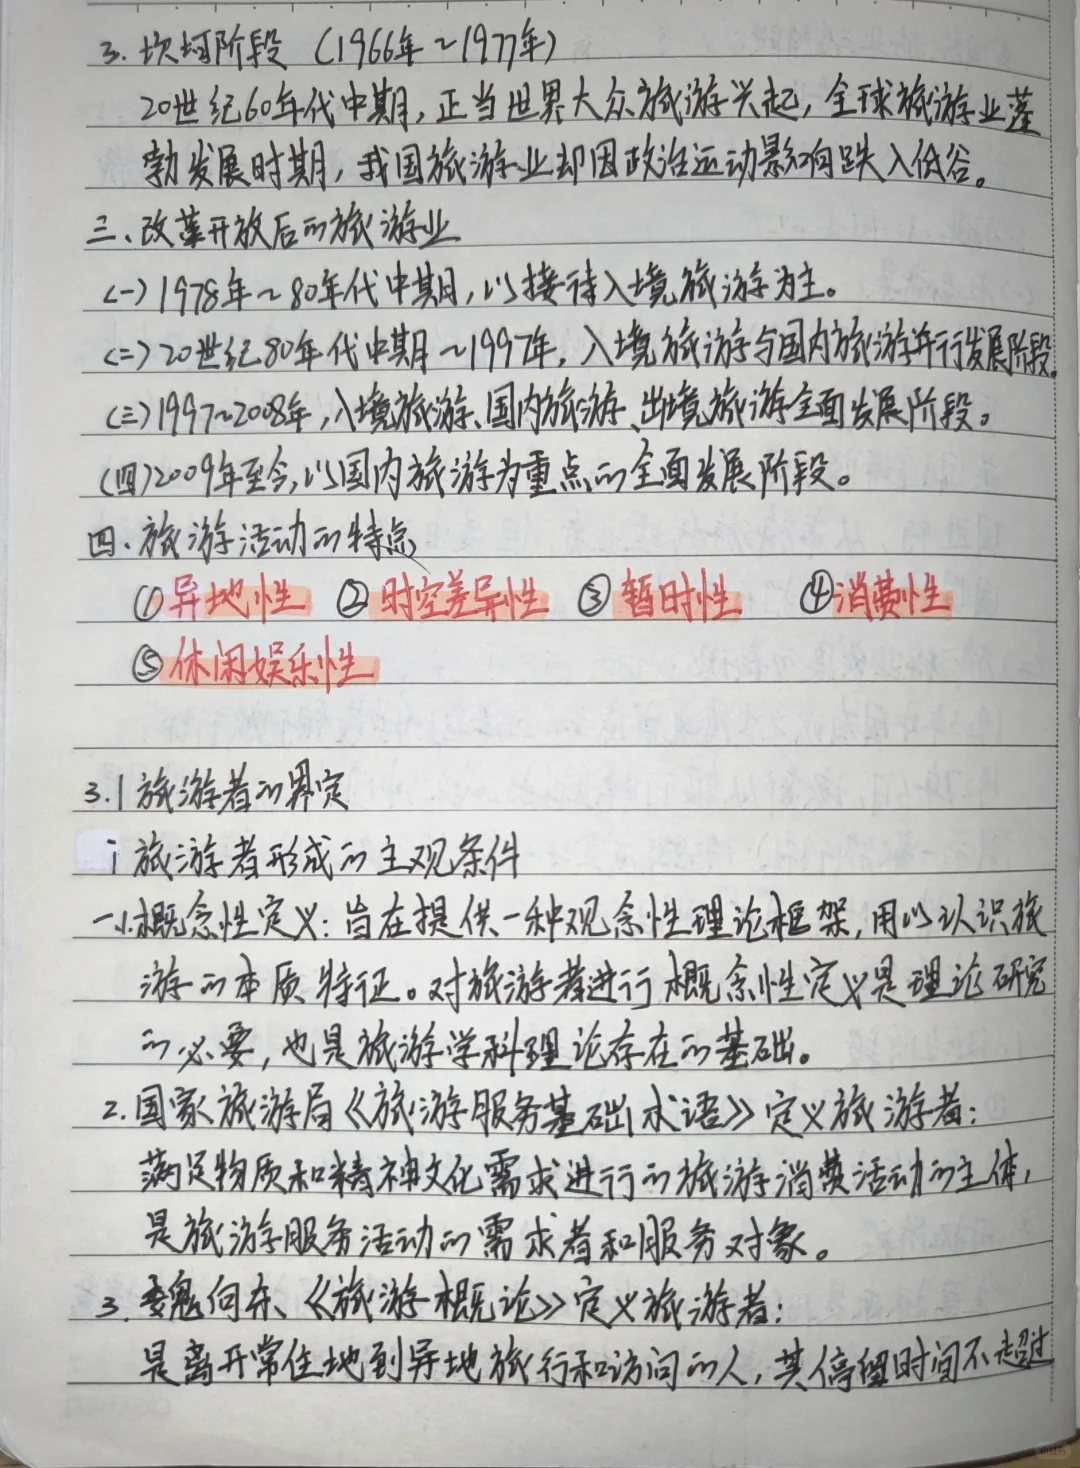 3. 坎坷阶段 (1966年~1977年)
20世纪60年代中期,正当世界大众旅游兴起,全球旅游业蓬
勃发展时期,我国旅游业却因政治运动影响跌入低谷。
三、改革开放后的旅游业
(一)1978年~80年代中期,以接待入境旅游为主。
(二)20世纪80年代中期~1997年,入境旅游与国内旅游并行发展阶段。
(三)1997~2008年,入境旅游、国内旅游、出境旅游全面发展阶段。
(四)2009年至今,以国内旅游为重点的全面发展阶段。
四、旅游活动的特点
①异地性 ②时空差异性 ③暂时性 ④消费性
⑤休闲娱乐性
3.1旅游者的界定
i 旅游者形成的主观条件
一、1.概念性定义:旨在提供一种观念性理论框架,用以认识旅
游的本质特征。对旅游者进行概念性定义是理论研究
的必要,也是旅游学科理论存在的基础。
2.国家旅游局《旅游服务基础术语》定义旅游者:
满足物质和精神文化需求进行的旅游消费活动的主体,
是旅游服务活动的需求者和服务对象。
3.魏向东、《旅游概论》定义旅游者:
是离开常住地到异地旅行和访问的人,其停留时间不超过